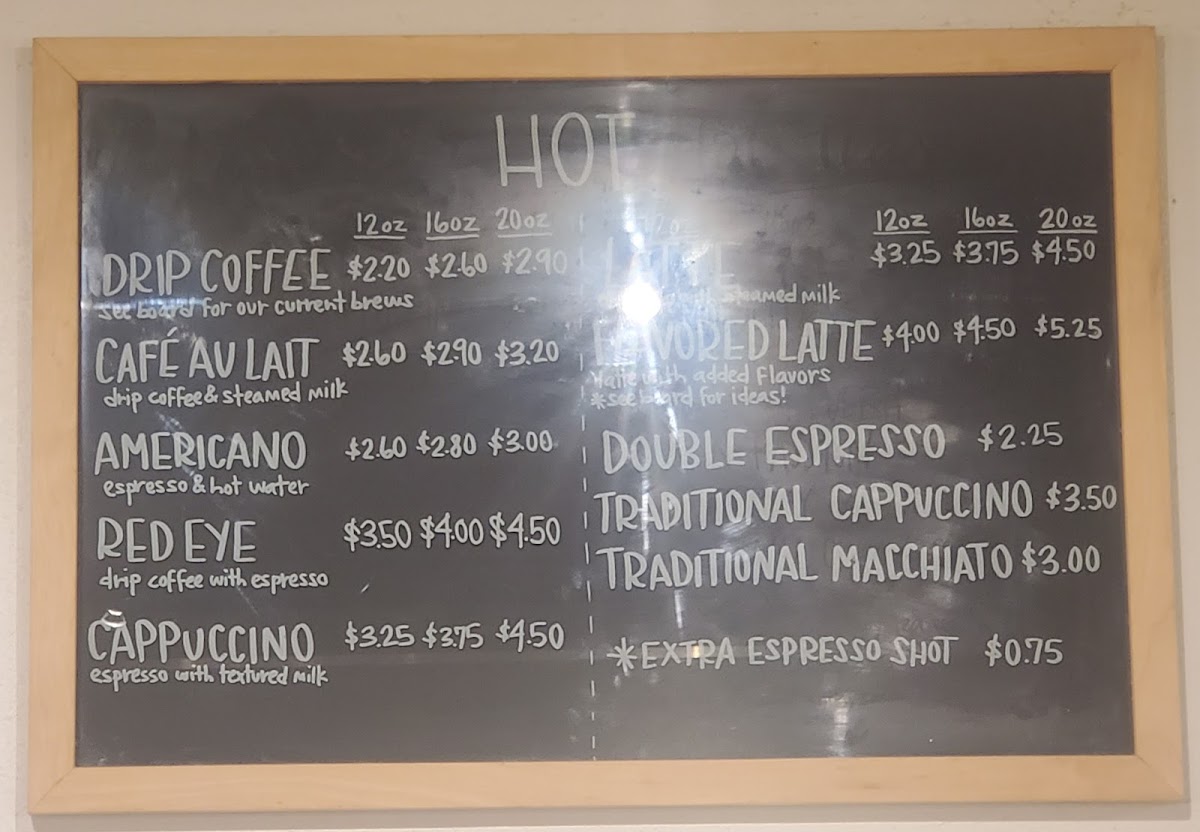 HOT
12oz 16oz 20oz
DRIP COFFEE $2.20 $2.60 $2.90
see board for our current brews
CAFÉ AU LAIT $2.60 $2.90 $3.20
drip coffee & steamed milk
AMERICANO $2.60 $2.80 $3.00
espresso & hot water
RED EYE $3.50 $4.00 $4.50
drip coffee with espresso
CAPPUCCINO $3.25 $3.75 $4.50
espresso with textured milk
12oz 16oz 20oz
LATTE $3.25 $3.75 $4.50
steamed milk
FLAVORED LATTE $4.00 $4.50 $5.25
latte with added flavors
*see board for ideas!
DOUBLE ESPRESSO $2.25
TRADITIONAL CAPPUCCINO $3.50
TRADITIONAL MACCHIATO $3.00
*EXTRA ESPRESSO SHOT $0.75